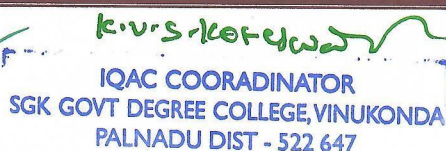 K.V.S.Koteswa
IQAC COORADINATOR
SGK GOVT DEGREE COLLEGE, VINUKONDA
PALNADU DIST - 522 647